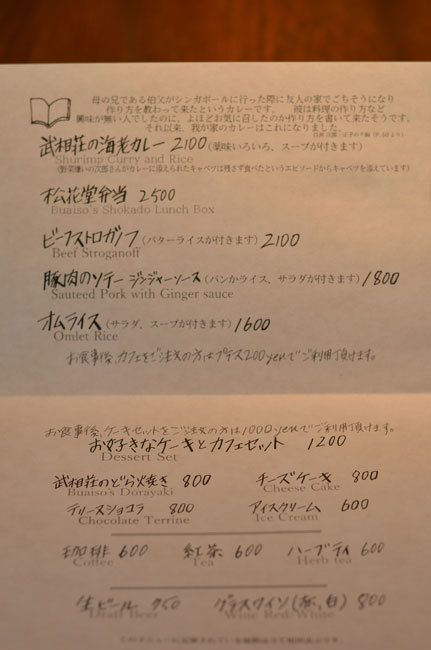 母の兄である伯父がシンガポールに行った際に友人の家でごちそうになり
作り方を教わって来たというカレーです。 彼は料理の作り方など
興味が無い人でしたのに、よほどお気に召したのか作り方を書いて来たそうです。
それ以来、我が家のカレーはこれになりました。
武相荘の海老カレー 2100 (薬味いろいろ、スープが付きます)
Shurimp Curry and Rice
(野菜嫌いの次郎さんがカレーに添えられたキャベツは残さず食べたというエピソードからキャベツを添えています)
松花堂弁当 2500
Buaiso's Shokado Lunch Box
ビーフストロガノフ (バターライスが付きます) 2100
Beef Stroganoff
豚肉のソテー ジンジャーソース (パンかライス、サラダが付きます) 1800
Sauteed Pork with Ginger sauce
オムライス (サラダ、スープが付きます) 1600
Omlet Rice
お食事後、カフェをご注文の方はプラス200yenでご利用頂けます。
お食事後、ケーキセットをご注文の方は1000yenでご利用頂けます。
お好きなケーキとカフェセット 1200
Dessert Set
武相荘のどら焼き 800 チーズケーキ 800
Buaiso's Dorayaki Cheese Cake
テリーヌショコラ 800 アイスクリーム 600
Chocolate Terrine Ice Cream
珈琲 600 紅茶 600 ハーブティ 600
Coffee Tea Herb tea
生ビール 750 グラスワイン(赤、白) 800
Draft Beer Wine Red/White